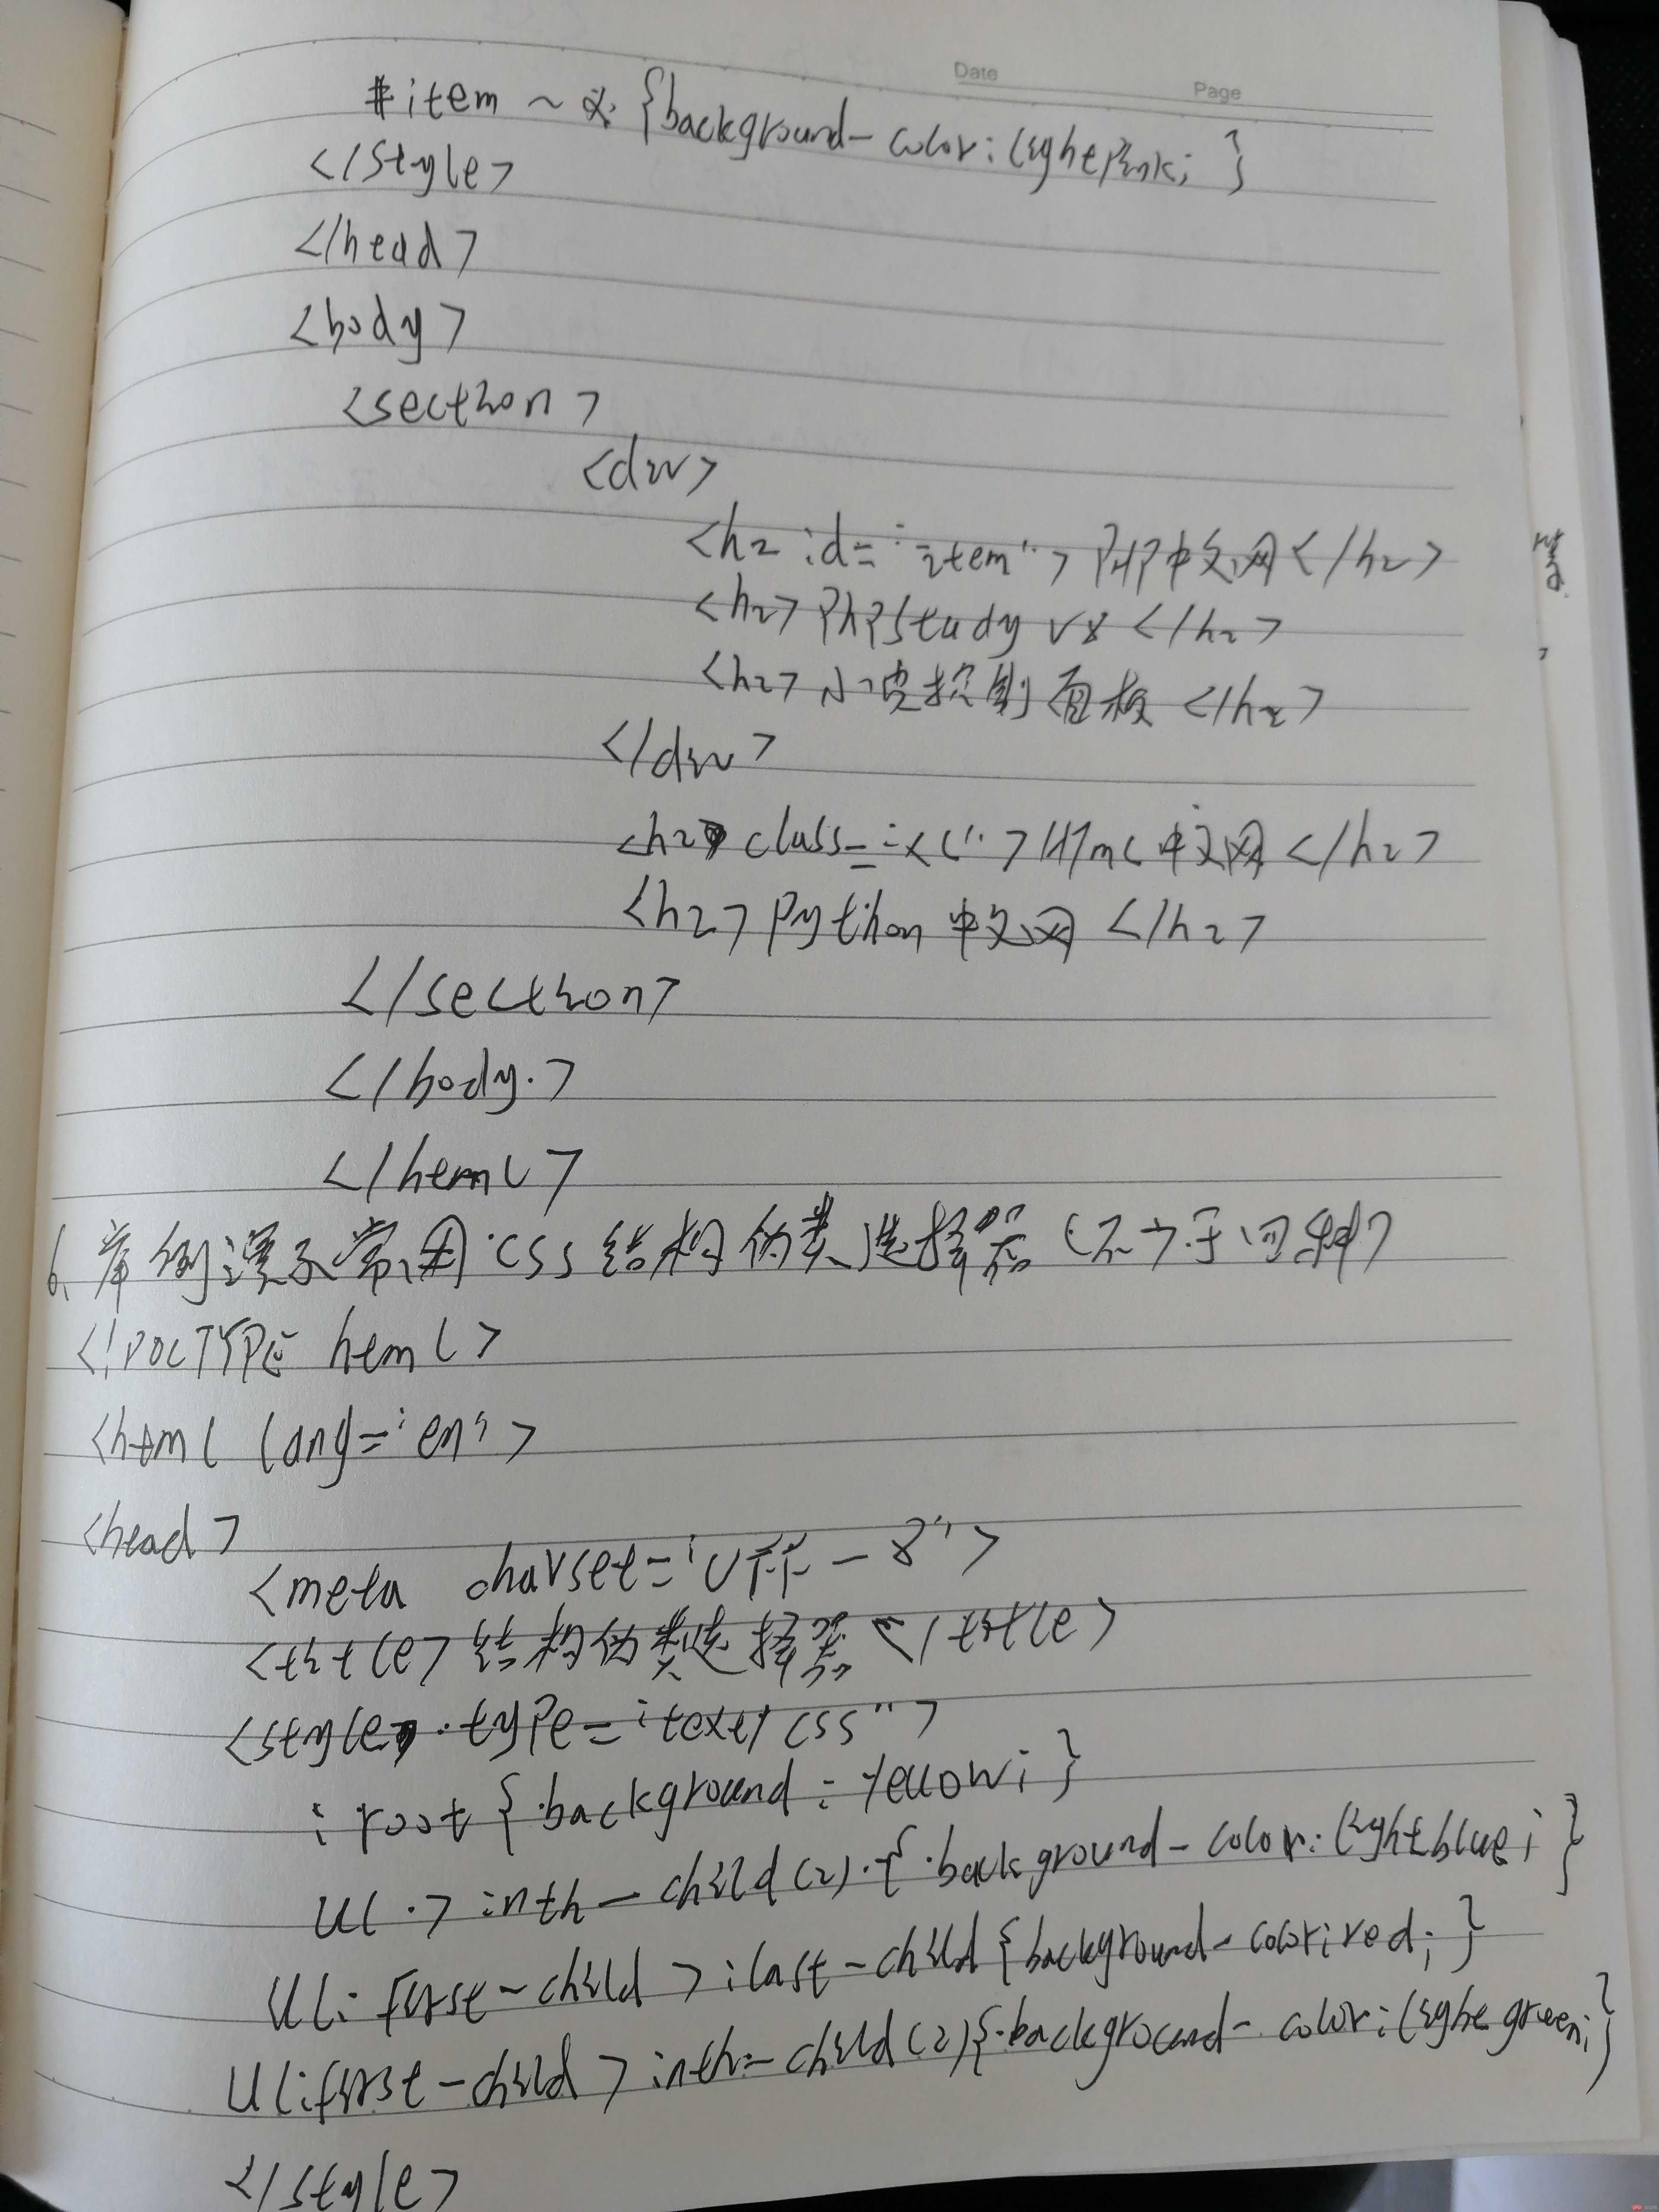 Date Page
#item ~ * {background-color:lightpink; }
</style>
</head>
<body>
<section>
<div>
<h2 id="item"> PHP中文网</h2>
<h2>PhPStudy V8</h2>
<h2>小皮控制面板</h2>
</div>
<h2 class="xl">HTml中文网</h2>
<h2>Python中文网</h2>
</section>
</body>
</html>
6、举例演示常用CSS结构伪类选择器(不少于四种)
<!DOCTYPE html>
<html lang="en">
<head>
<meta charset="UTF-8">
<title>结构伪类选择器</title>
<style type="text/css">
:root {background:yellow;}
ul > :nth-child(2) {background-color:lightblue;}
ul:first-child > :last-child {background-color:red;}
ul:first-child > :nth-child(2){background-color:lightgreen;}
</style>